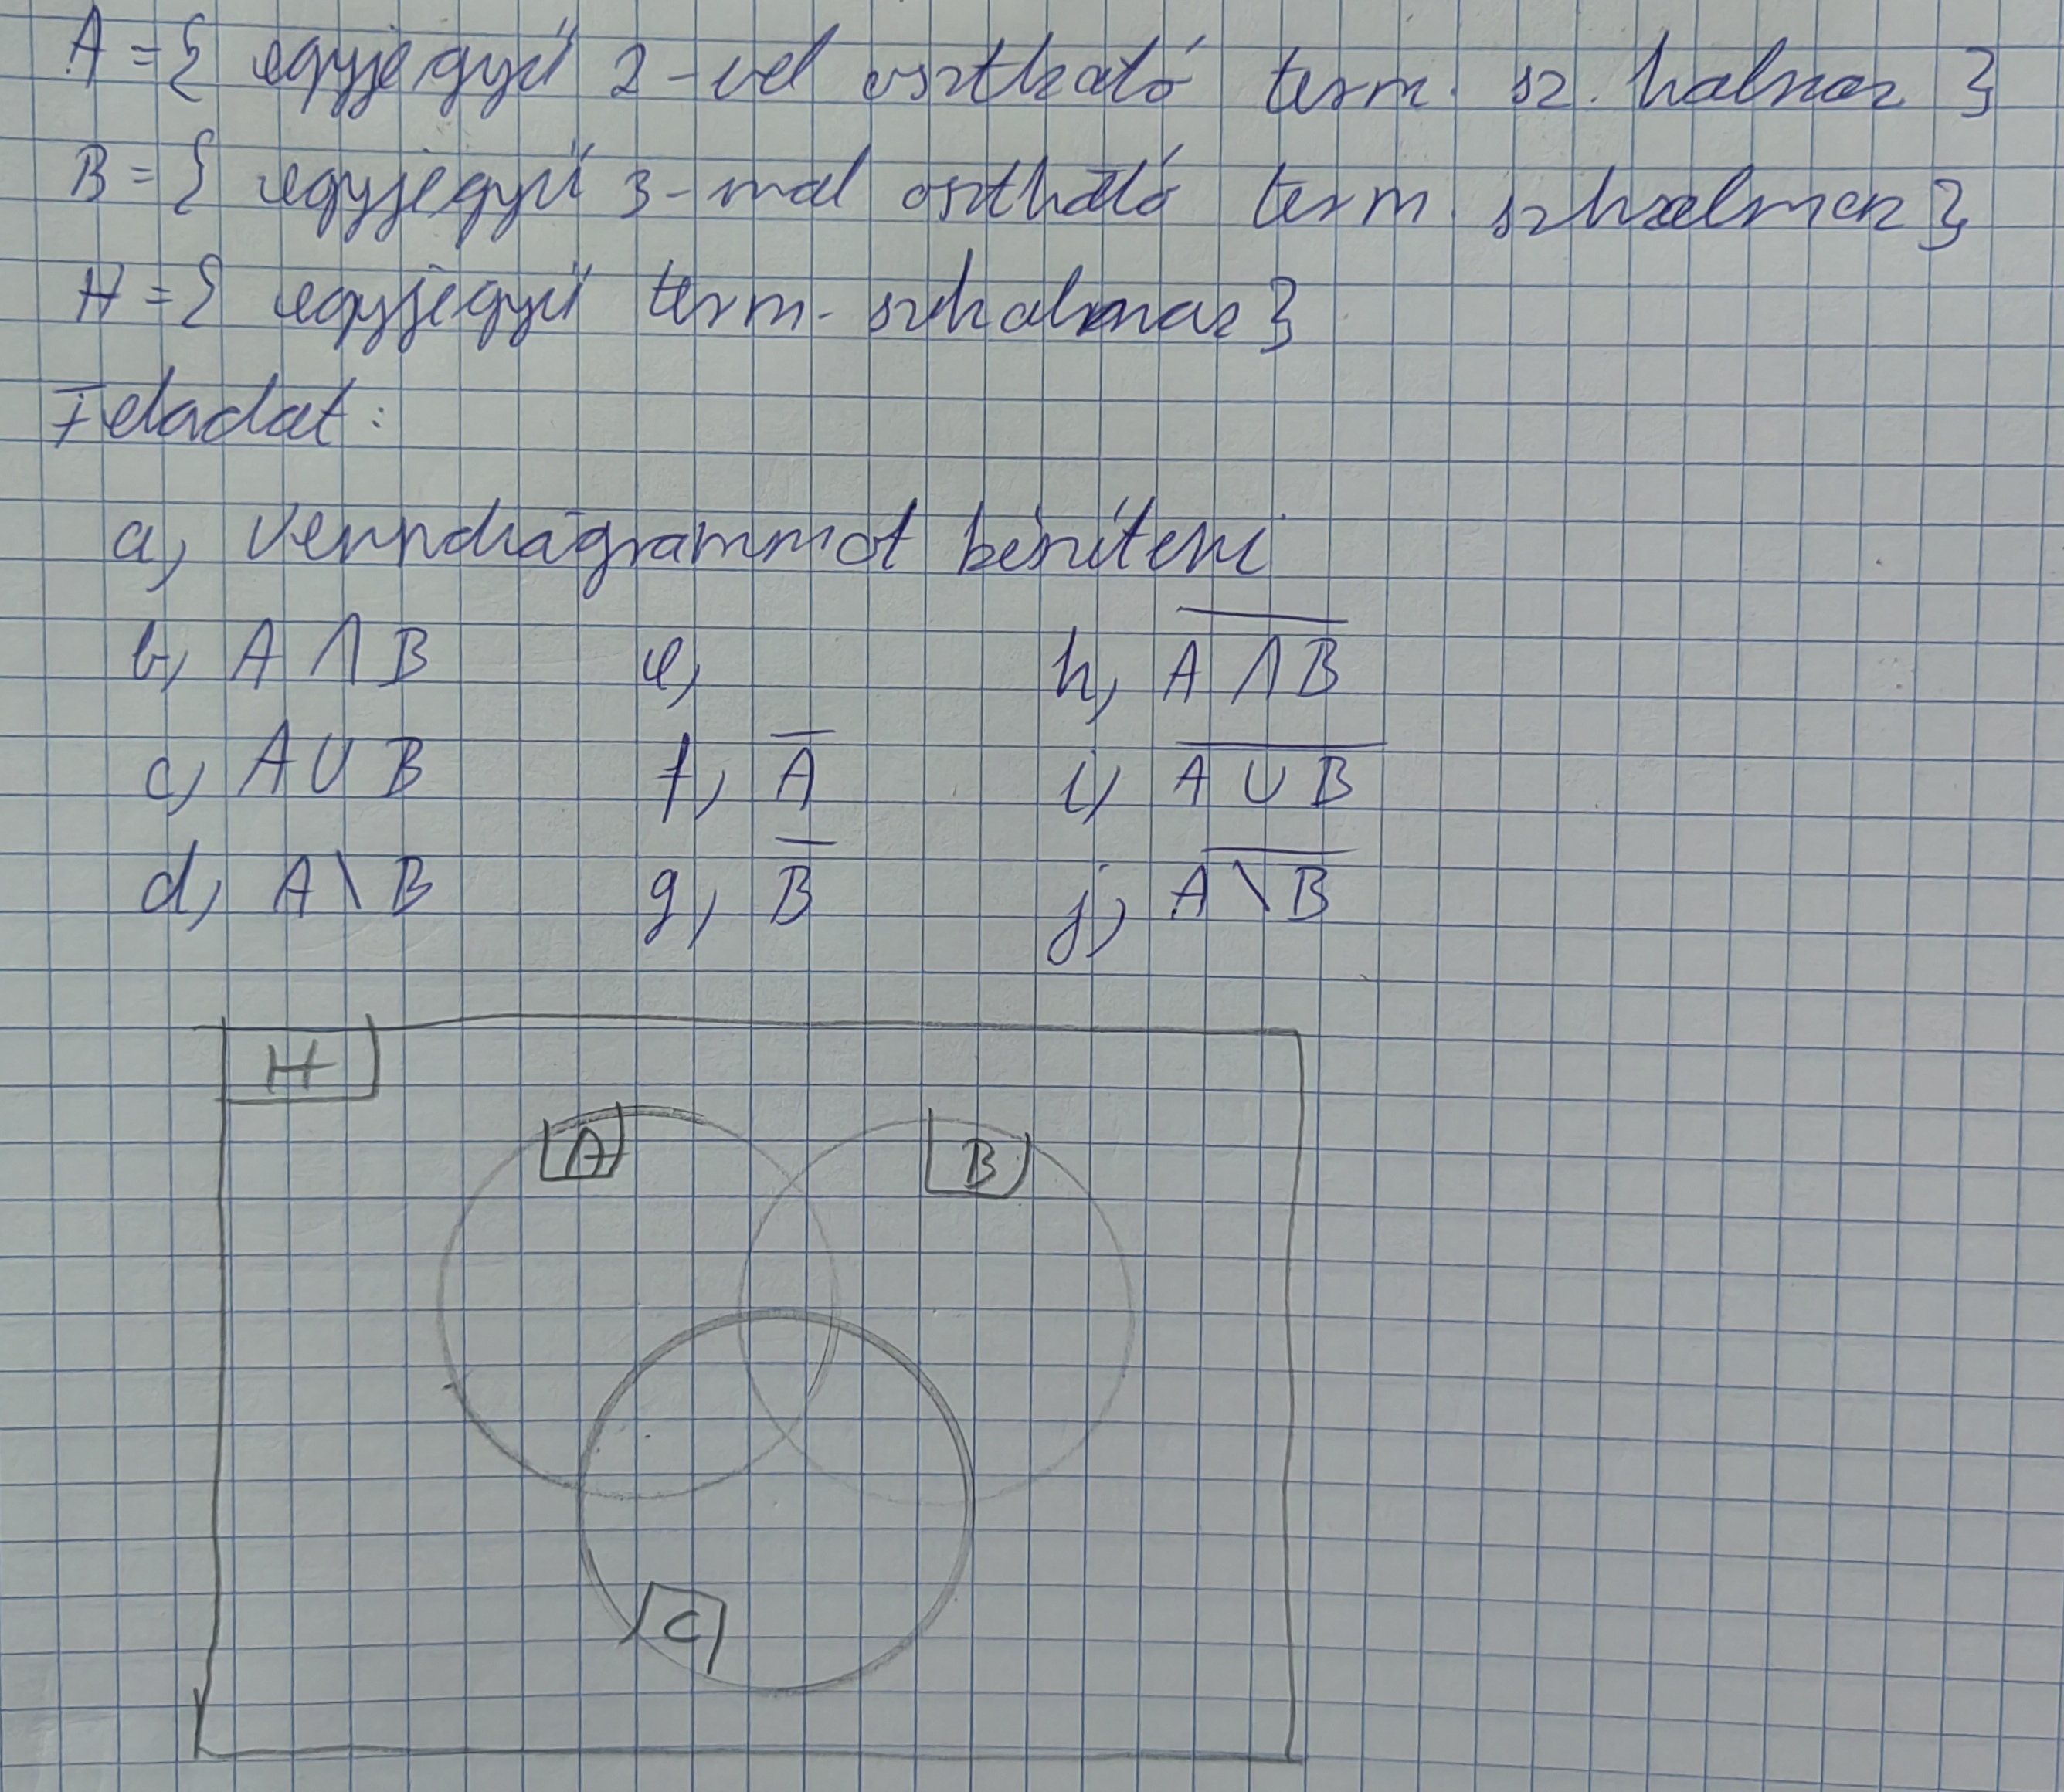 A = { egyjegyű 2-vel osztható term. sz. halmaz }
B = { egyjegyű 3-mal osztható term. szhalmaz }
H = { egyjegyű term. szhalmaz }
Feladat:
a, Venndiagrammot készíteni
b, A ∩ B e, h, A̅ ̅∩̅ ̅B̅
c, A ∪ B f, A̅ i, A̅ ̅∪̅ ̅B̅
d, A \ B g, B̅ j, A̅ ̅\̅ ̅B̅
H
A B
C